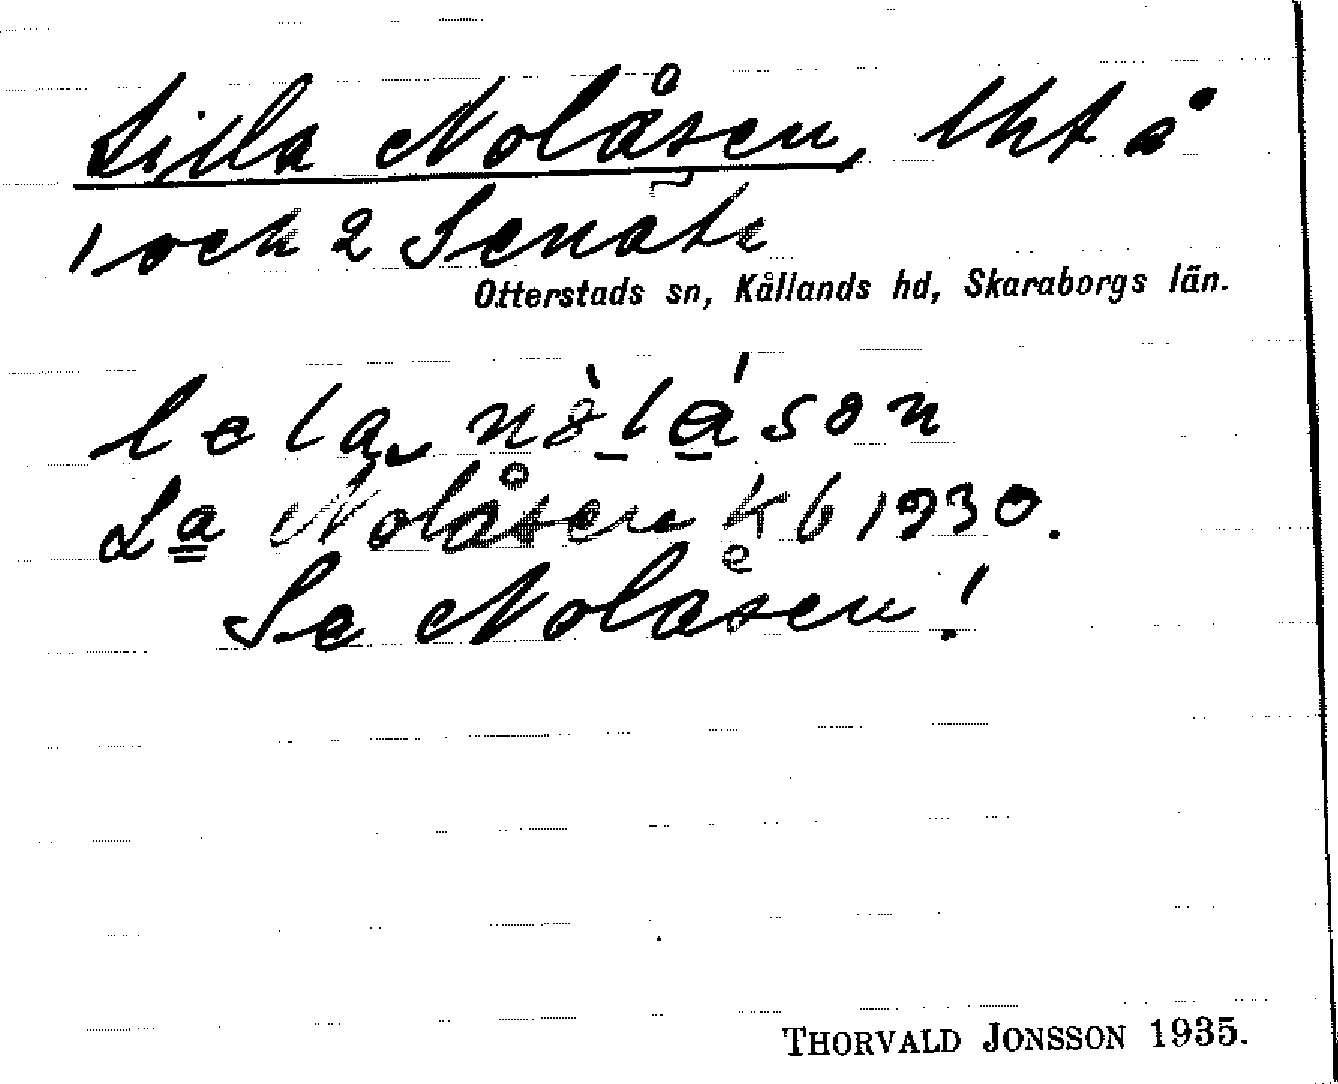 Lilla Nolåsen, lht å
1 och 2 Senäte
Otterstads sn, Kållands hd, Skaraborgs län.
La Nolåsen kb 1930.
Se Nolåsen!
THORVALD JONSSON 1935.